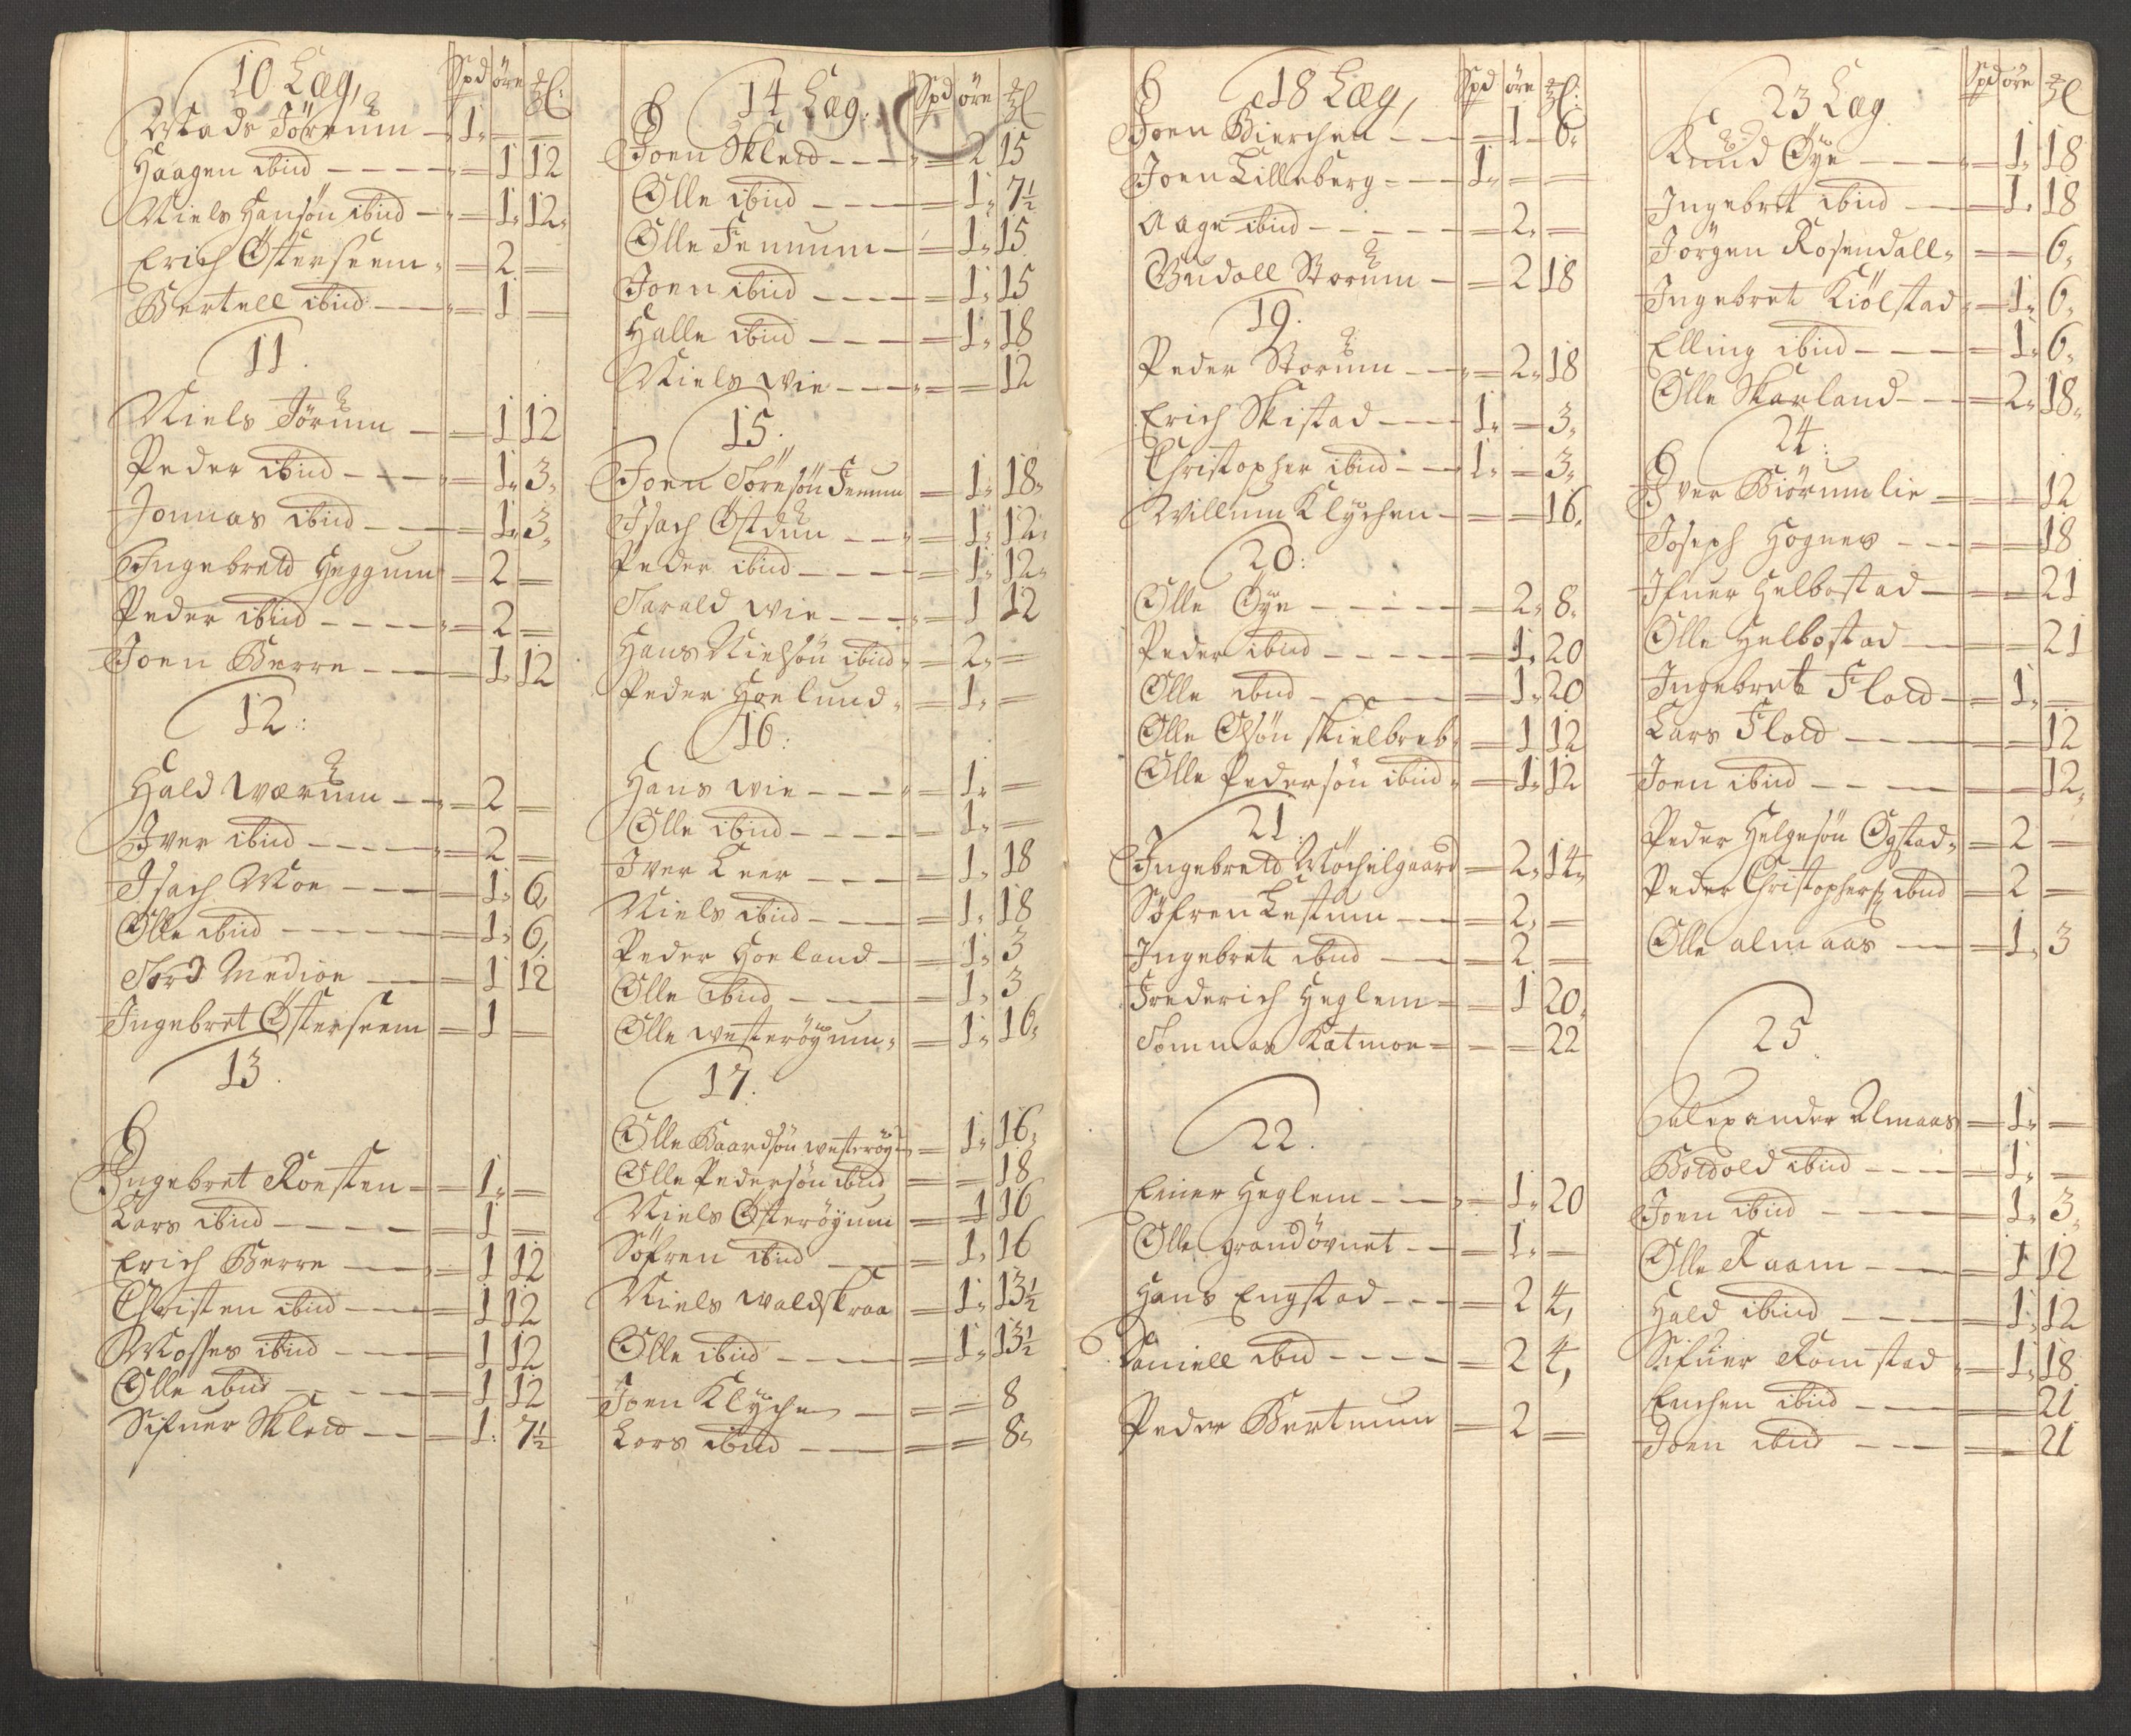 10 Læg, Spd öre
Mads Jörum 1
Haagen ibid 1 12
Niels Hansön ibid 1 12
Erich Österseem 2
Bertell ibid 1
11.
Niels Jörum 1 12
Peder ibid 1 3
Jonnas ibid 1 3
Ingebretd Heggum 2
Peder ibid 2
Joen Berre 1 12
12:
Hald Wærum 2
Iver ibid 2
Isach Moe 1 6
Olle ibid 1 6
Tord Medioe 1 12
Ingebret Österseem 1
13.
Ingebret Roesten 1
Lars ibid 1
Erich Berre 1 12
Christen ibid 1 12
Mosses ibid 1 12
Olle ibid 1 12
Sifuer Skleed 1 7½
14 Læg: Spd öre
Joen Skleed 2 15
Olle ibid 1 7½
Olle Femum 1 15
Joen ibid 1 15
Halle ibid 1 18
Niels Wie 12
15.
Joen Töresön Femum 1 18
Isach Östdun 1 12
Peder ibid 1 12
Tarald Wie 1 12
Hans Nielsön ibid 2
Peder Hoelund 1
16:
Hans Wie 1
Olle ibid 1
Iver Leer 1 18
Niels ibid 1 18
Peder Hoeland 1 3
Olle ibid 1 3
Olle Westeröyum 1 16
17.
Olle Baardsön Westeröy 1 16
Olle Pedersön ibid 18
Niels Österöyum 1 16
Söfren ibid 1 16
Niels Waldskraa 1 13½
Olle ibid 1 13½
Joen Klychen 8
Lars ibid 8
18 Læg, Spd öre
Joen Bierchen 1 6
Joen Lilleberg 1
Aage ibid 2
Gudall Storum 2 18
19.
Peder Storum 2 18
Erich Skistad 1 3
Christopher ibid 1 3
Willum Klychen 16
20:
Olle Öye 2 8
Peder ibid 1 20
Olle ibid 1 20
Olle Olsön Skielbreed 1 12
Olle Pedersön ibid 1 12
21.
Ingebretd Möchelgaard 2 14
Söfren Lestum 2
Ingebret ibid 2
Frederich Heglem 1 20
Tommas Katmoe 22
22.
Einer Heglem 1 20
Olle Grandövnet 1
Hans Engstad 2 4
Daniell ibid 2 4
Peder Bertnum 2
23 Læg. Spd öre
Knud Öye 1 18
Ingebret ibid 1 18
Jörgen Rosendall 6
Ingebret Kiölstad 1 6
Elling ibid 1 6
Olle Skarland 2 18
24:
Iver Biörumlie 12
Joseph Hognes 18
Ifuer Helbostad 21
Olle Helbostad 21
Ingebret Floed 1
Lars Floed 12
Joen ibid 12
Peder Helgesön Ögstad 2
Peder Christophers: ibid 2
Olle Almaas 1 3
25.
Alexander Almaas 1
Botold ibid 1
Joen ibid 1 3
Olle Raam 1 12
Hald ibid 1 12
Sifuer Romstad 1 18
Enchen ibid 21
Joen ibid 21